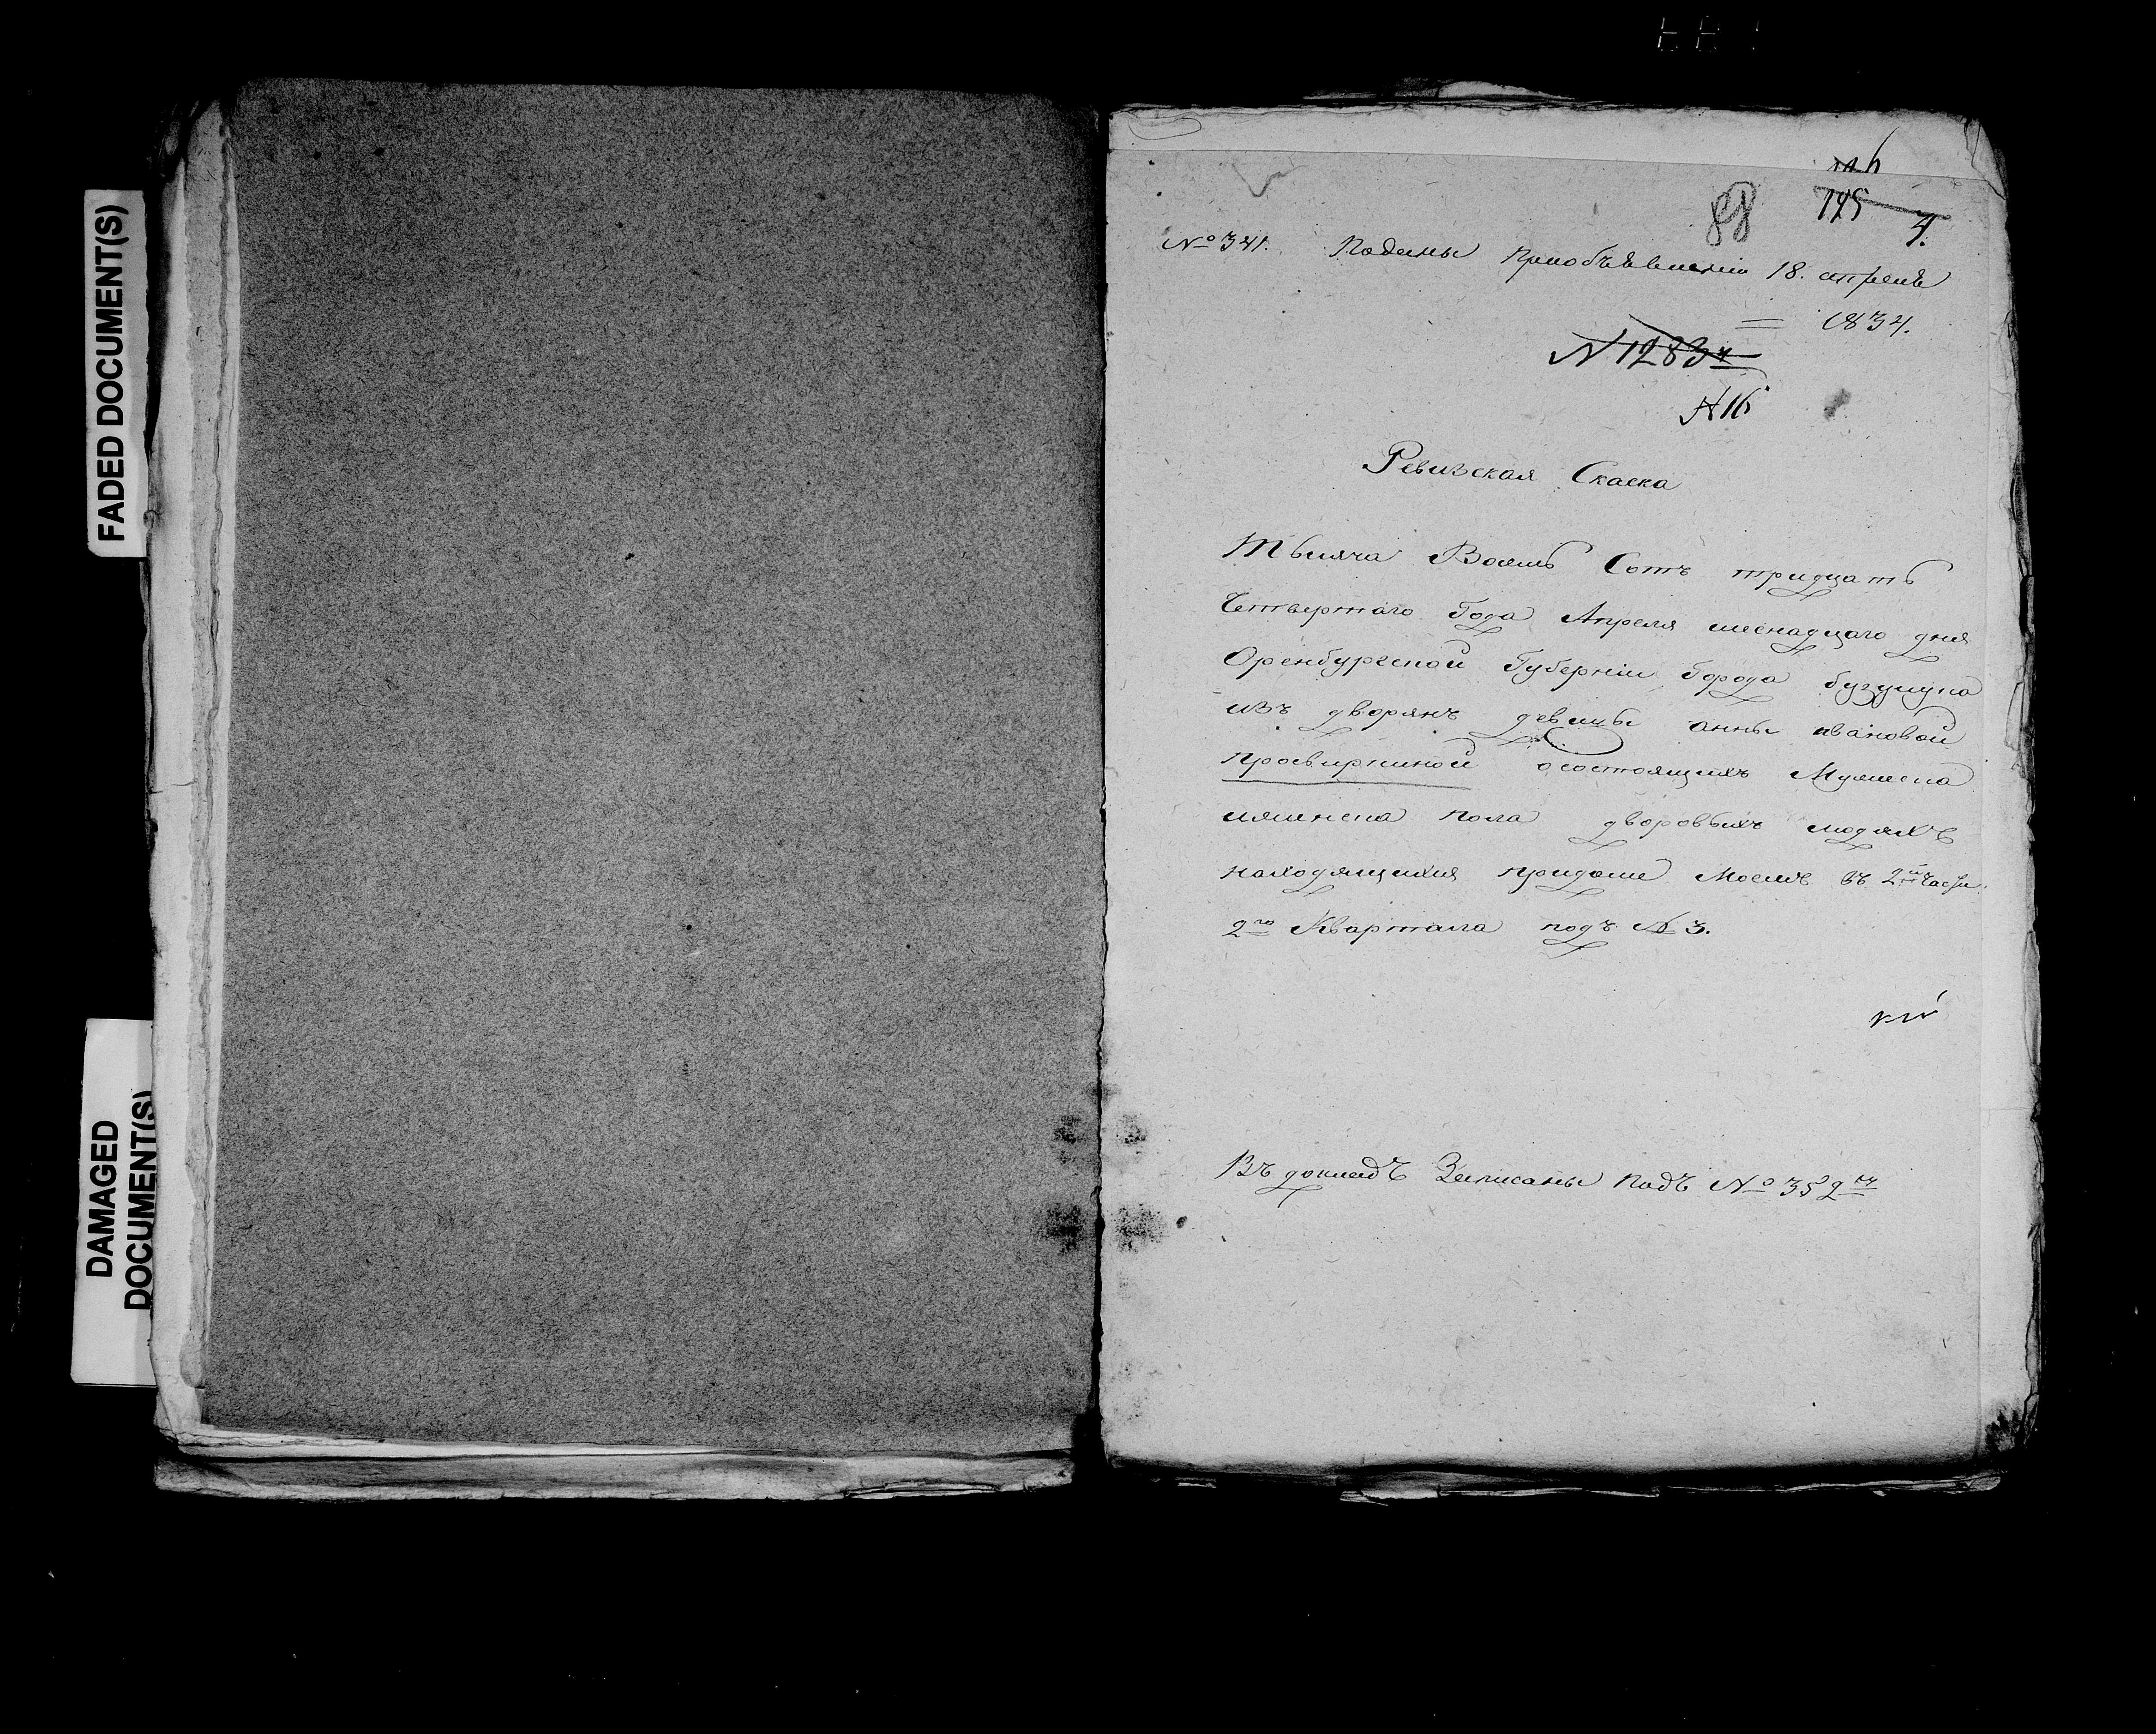 FADED DOCUMENT(S)
DAMAGED
DOCUMENT(S)
88
125
4.
№ 341. Поданы приобъявлении 18. апреля
1834.
N 1283
N 16
Ревизская Скаска
Тысяча Восемь Сотъ тридцать
Четвертаго Года Апреля шеснадцаго дня
Оренбургской Губернии Города бузулука
изъ дворянъ девицы анны ивановой
Просвирниной осостоящихъ Мужеска
иженска пола дворовыхъ людяхъ
находящихся придоме Моемъ въ 2й части
2го Квартала подъ № 3.
Въ докладъ Записаны подъ № 352